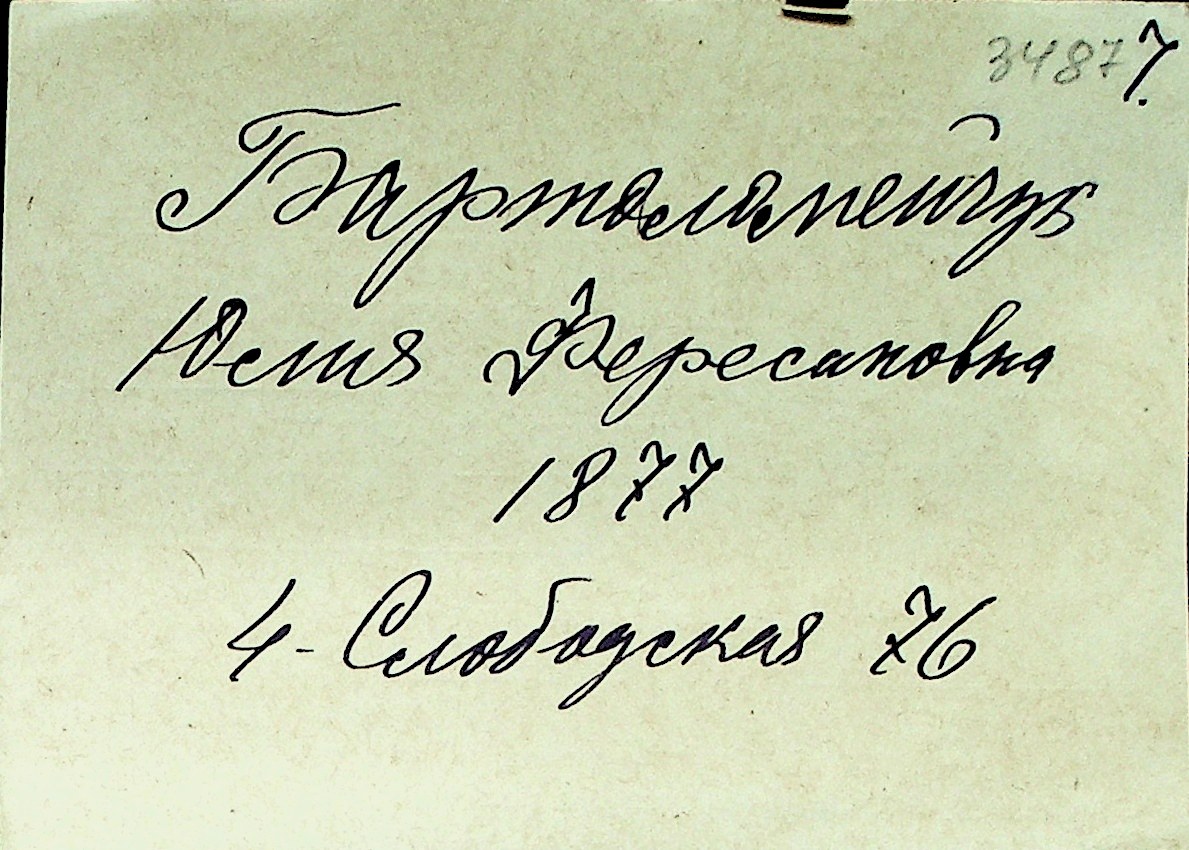 34877.
Бартоломейчук
Юстя Фересановна
1877
4-Слободская 76